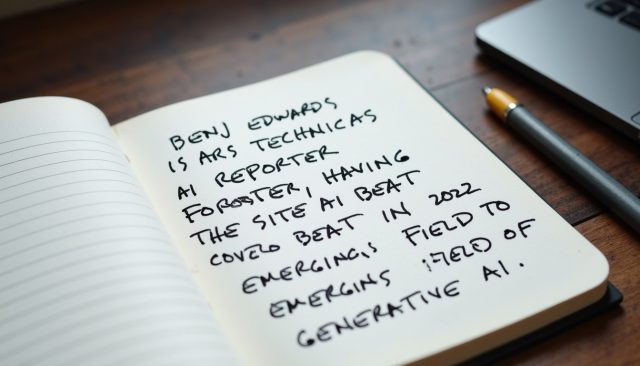 BENJ EDWARDS
IS ARS TECHNICAS
AI REPORTER
FOROSTER, HAVING
THE SITE AI BEAT
COVELO BEAT IN 2022
EMERGINGIS FIELD TO
EMERGINS FIELD OF
GENERATIVE AI.